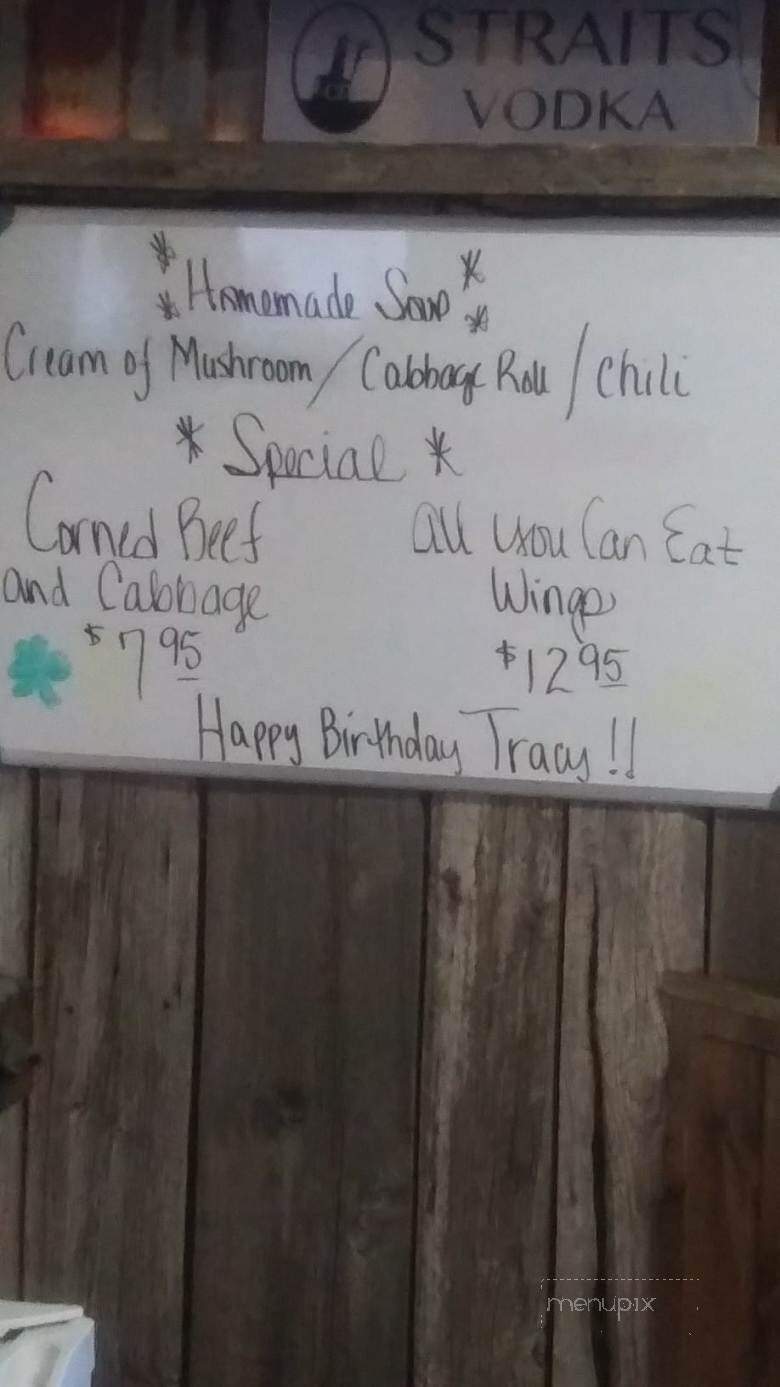 STRAITS
VODKA
* Homemade Soup *
* *
Cream of Mushroom / Cabbage Roll / Chili
* Special *
Corned Beef
and Cabbage
$7.95
All You Can Eat
Wings
$12.95
Happy Birthday Tracy!!
menupix